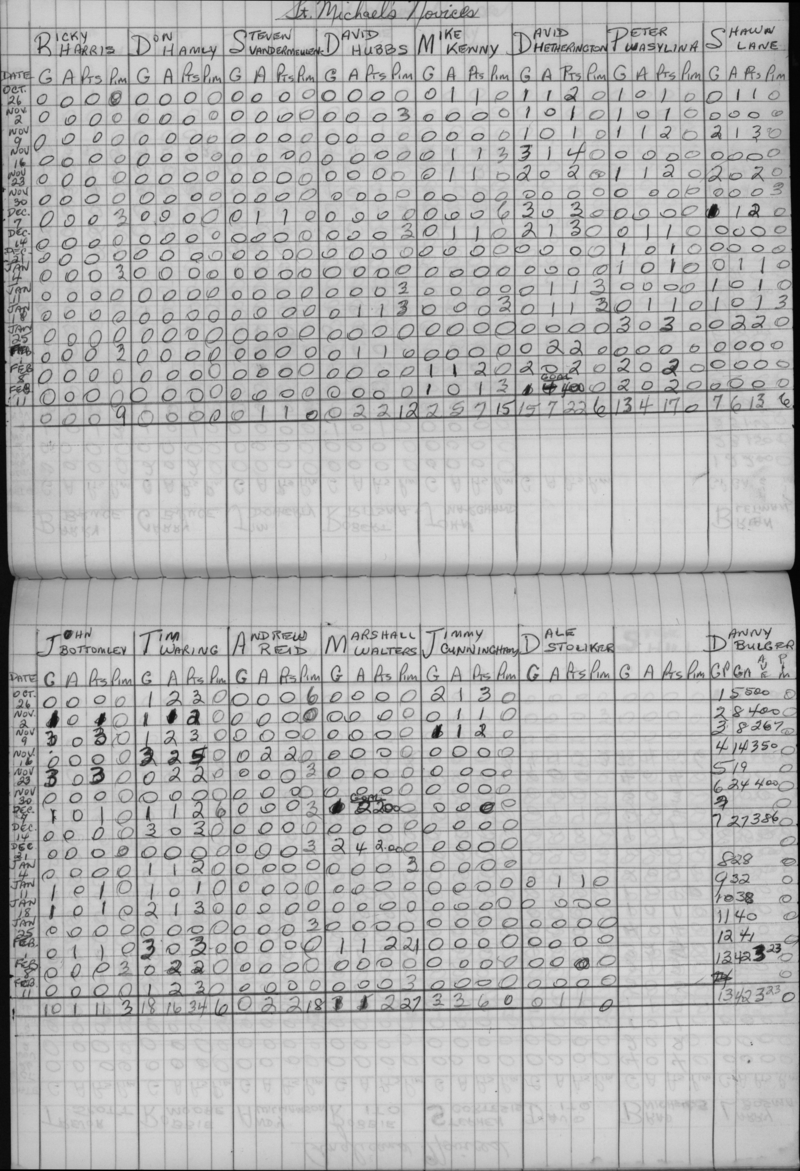 St. Michael's Novices
RICKY HARRIS DON HAMLY STEVEN VANDERMEULEN DAVID HUBBS MIKE KENNY DAVID HETHERINGTON PETER WASYLINA SHAWN LANE
DATE G A Pts Pim G A Pts Pim G A Pts Pim G A Pts Pim G A Pts Pim G A Pts Pim G A Pts Pim G A Pts Pim
OCT. 26 0 0 0 0 0 0 0 0 0 0 0 0 0 0 0 0 0 1 1 0 1 1 2 0 1 0 1 0 0 1 1 0
NOV 2 0 0 0 0 0 0 0 0 0 0 0 0 0 0 0 3 0 0 0 0 1 0 1 0 1 0 1 0 0 0 0 0
NOV 9 0 0 0 0 0 0 0 0 0 0 0 0 0 0 0 0 0 0 0 0 1 0 1 0 1 1 2 0 2 1 3 0
NOV 16 0 0 0 0 0 0 0 0 0 0 0 0 0 0 0 0 0 1 1 3 3 1 4 0 0 0 0 0 0 0 0 0
NOV 23 0 0 0 0 0 0 0 0 0 0 0 0 0 0 0 0 0 1 1 0 2 0 2 0 1 1 2 0 2 0 2 0
NOV 30 0 0 0 0 0 0 0 0 0 0 0 0 0 0 0 0 0 0 0 0 0 0 0 0 0 0 0 0 0 0 0 3
DEC. 7 0 0 0 3 0 0 0 0 0 1 1 0 0 0 0 0 0 0 0 6 3 0 3 0 0 0 0 0 1 1 2 0
DEC. 14 0 0 0 0 0 0 0 0 0 0 0 0 0 0 0 3 0 1 1 0 2 1 3 0 0 1 1 0 0 0 0 0
DEC. 21 0 0 0 0 0 0 0 0 0 0 0 0 0 0 0 0 0 0 0 0 0 0 0 0 1 0 1 0 0 0 0 0
JAN 4 0 0 0 3 0 0 0 0 0 0 0 0 0 0 0 0 0 0 0 0 0 0 0 0 1 0 1 0 0 1 1 0
JAN 11 0 0 0 0 0 0 0 0 0 0 0 0 0 0 0 3 0 0 0 0 0 1 1 3 0 0 0 0 1 0 1 0
JAN 18 0 0 0 0 0 0 0 0 0 0 0 0 0 1 1 3 0 0 0 3 0 1 1 3 0 1 1 0 1 0 1 3
JAN 25 0 0 0 0 0 0 0 0 0 0 0 0 0 0 0 0 0 0 0 0 0 0 0 0 3 0 3 0 0 2 2 0
FEB 1 0 0 0 3 0 0 0 0 0 0 0 0 0 1 1 0 0 0 0 0 0 2 2 0 0 0 0 0 0 0 0 0
FEB 8 0 0 0 0 0 0 0 0 0 0 0 0 0 0 0 0 1 1 2 0 2 0 2 0 2 0 2 0 0 0 0 0
FEB 11 0 0 0 0 0 0 0 0 0 0 0 0 0 0 0 0 1 0 1 3 GOAL 4.00 0 2 0 2 0 0 0 0 0
0 0 0 9 0 0 0 0 0 1 1 0 0 2 2 12 2 5 7 15 15 7 22 6 13 4 17 0 7 6 13 6
JOHN BOTTOMLEY TIM WARING ANDREW REID MARSHALL WALTERS JIMMY CUNNINGHAM DALE STOLIKER DANNY BULGER
DATE G A Pts Pim G A Pts Pim G A Pts Pim G A Pts Pim G A Pts Pim G A Pts Pim G A Pts Pim GP GA AVE PIM
OCT. 26 0 0 0 0 1 2 3 0 0 0 0 6 0 0 0 0 2 1 3 0 1 5 5.00 0
NOV. 2 1 0 1 0 1 1 2 0 0 0 0 0 0 0 0 0 0 1 1 0 2 8 4.00 0
NOV 9 3 0 3 0 1 2 3 0 0 0 0 0 0 0 0 0 1 1 2 0 3 8 2.67 0
NOV. 16 0 0 0 0 3 2 5 0 0 2 2 0 0 0 0 0 0 0 0 0 4 14 3.50 0
NOV 23 3 0 3 0 0 2 2 0 0 0 0 3 0 0 0 0 0 0 0 0 5 19
NOV 30 0 0 0 0 0 0 0 0 0 0 0 0 0 0 0 0 0 0 0 0 6 24 4.00 0
DEC. 7 1 0 1 0 1 1 2 6 0 0 0 3 GOAL 2 2.00 0 0 0 0 0
DEC 14 0 0 0 0 3 0 3 0 0 0 0 0 0 0 0 0 0 0 0 0 7 27 3.86 0
DEC 21 0 0 0 0 0 0 0 0 0 0 0 3 2 4 2.00 0 0 0 0 0 0
JAN 4 0 0 0 0 1 1 2 0 0 0 0 0 0 0 0 3 0 0 0 0 8 28 0
JAN 11 1 0 1 0 1 0 1 0 0 0 0 0 0 0 0 0 0 0 0 0 0 1 1 0 9 32 0
JAN 18 1 0 1 0 2 1 3 0 0 0 0 0 0 0 0 0 0 0 0 0 0 0 0 0 10 38 0
JAN 25 0 0 0 0 0 0 0 0 0 0 0 3 0 0 0 0 0 0 0 0 0 0 0 0 11 40 0
FEB 1 0 1 1 0 3 0 3 0 0 0 0 0 1 1 2 21 0 0 0 0 0 0 0 0 12 41 0
FEB 8 0 0 0 3 0 2 2 0 0 0 0 0 0 0 0 0 0 0 0 0 0 0 0 0 13 42 3.23 0
FEB 11 0 0 0 0 1 2 3 0 0 0 0 0 0 0 0 3 0 0 0 0 0 0 0 0 0
10 1 11 3 18 16 34 6 0 2 2 18 1 1 2 27 3 3 6 0 0 1 1 0 13 42 3.23 0